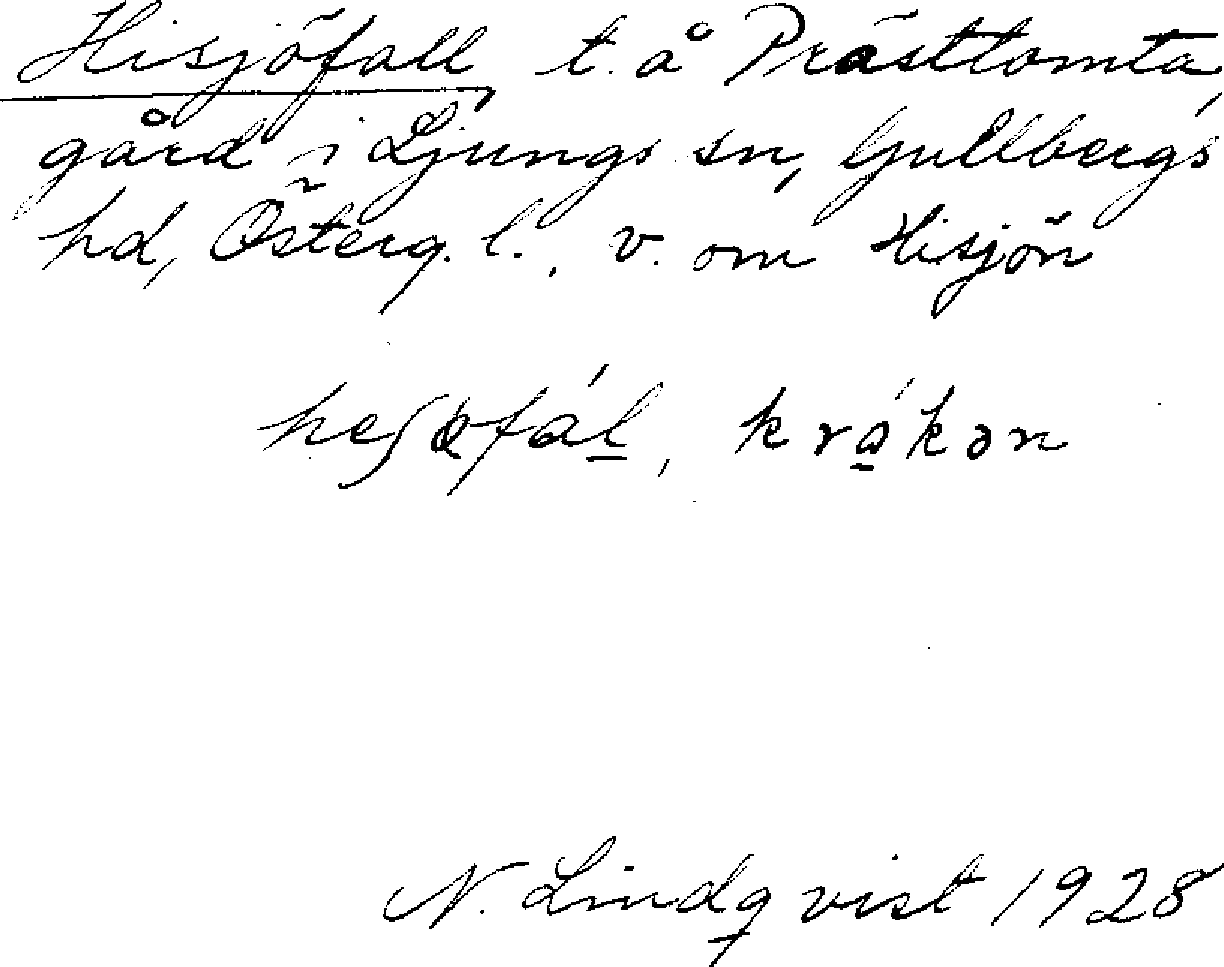 Hisjöfall, t. å Prästtomta,
gård i Ljungs sn, Gullbergs
hd, Österg. l., v. om Hisjön
krákən
N. Lindqvist 1928